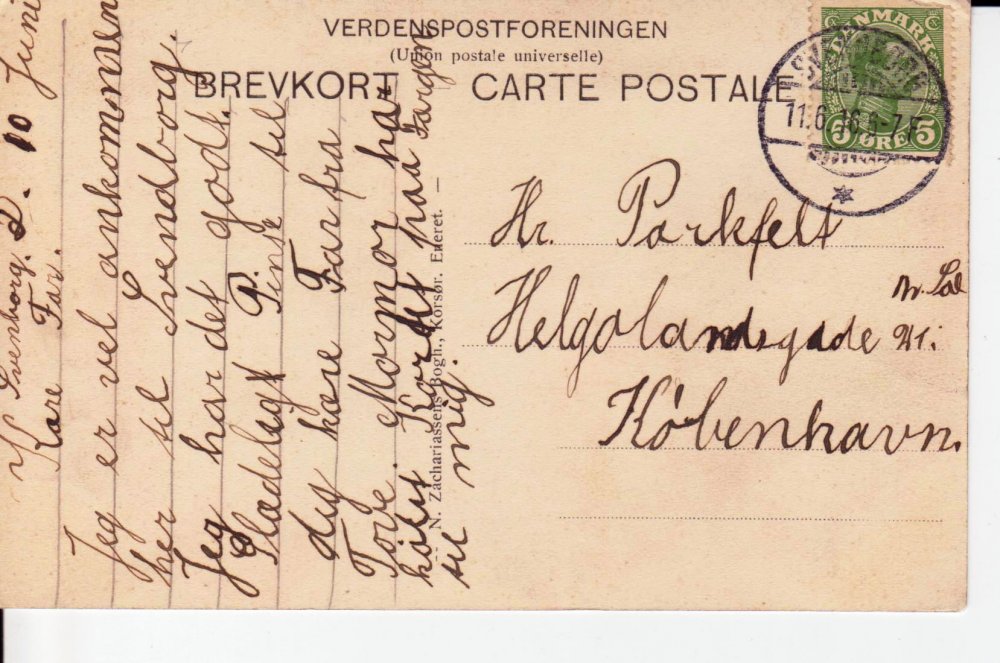 VERDENSPOSTFORENINGEN
(Union postale universelle)
BREVKORT CARTE POSTALE
DANMARK
5 ØRE 5
11.6.16.6-7F
Hr. Parkfelt
Helgolandsgade
København.
N. Zachariassens Bogh., Korsør. Eneret.
Svenborg. D. 10 Juni
Kære Far.
Jeg er vel ankommen
her til Svendborg.
Jeg har det godt.
Glædeligt P. inse til
dig kære Far fra
Tove. Mormor har
holdt Kortet paa Fargen
til mig.